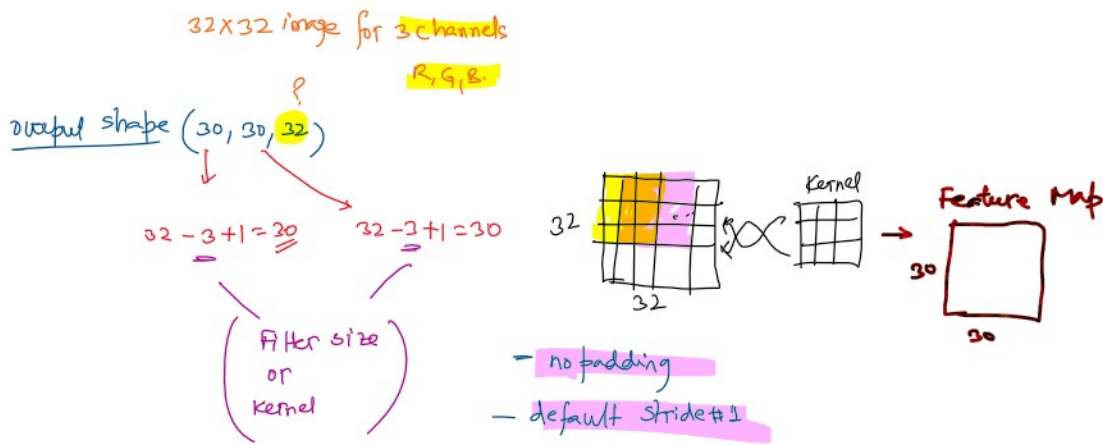 32x32 image for 3 channels
R, G, B.
?
output shape (30, 30, 32)
32 - 3 + 1 = 30
32 - 3 + 1 = 30
(Filter size
or
kernel)
32
...
32
Kernel
Feature Map
30
30
- no padding
- default stride #1